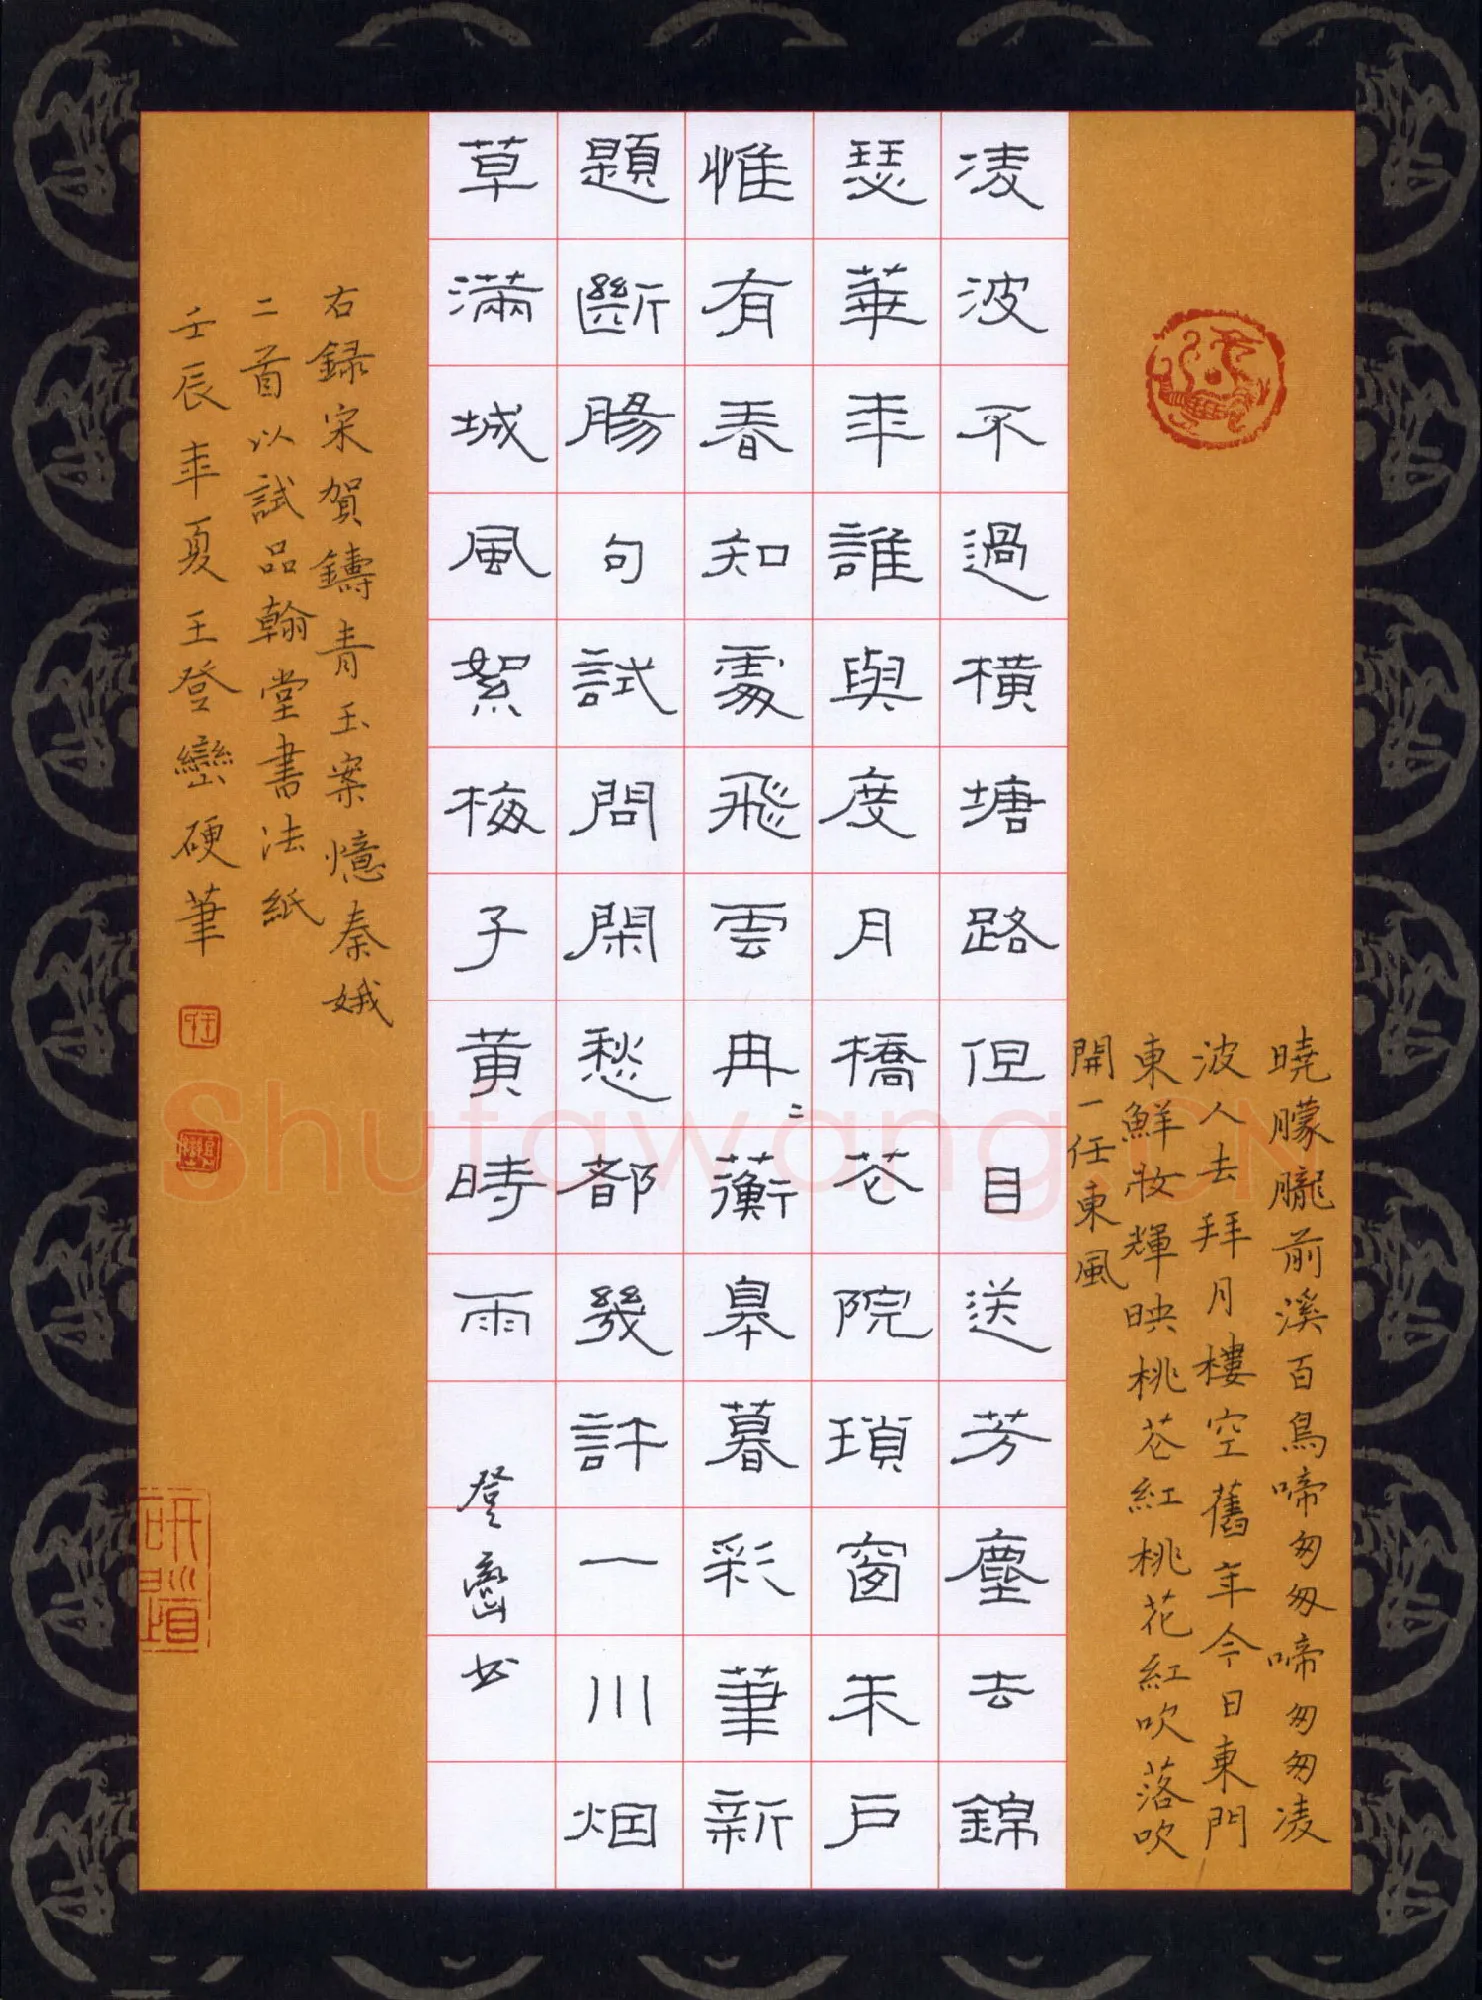 曉朦朧前溪百鳥啼匆匆啼匆匆凌
波人去拜月樓空舊年今日東門
東鮮妝輝映桃花紅桃花紅吹落吹
開一任東風
凌波不過橫塘路但目送芳塵去錦
瑟華年誰與度月橋花院瑣窗朱戶
惟有春知處飛雲冉〻蘅皋暮彩筆新
題斷腸句試問閑愁都幾許一川烟
草滿城風絮梅子黃時雨
登巒书
右録宋賀鑄青玉案憶秦娥
二首以試品翰堂書法紙
壬辰年夏王登巒硬筆
研道
Shufawang.CN